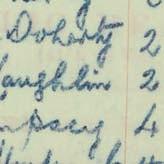 Doherty 2
aughlin 2
mpsey 4